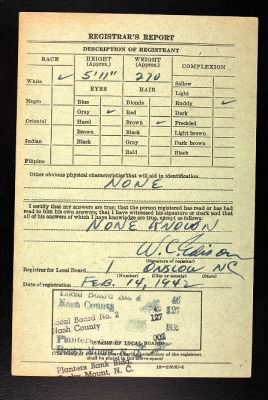 REGISTRAR'S REPORT
DESCRIPTION OF REGISTRANT
RACE HEIGHT (Approx.) WEIGHT (Approx.) COMPLEXION
White ✓ 5'11" 270 Sallow
EYES HAIR Light
Negro Blue Blonde Ruddy ✓
Gray ✓ Red Dark
Oriental Hazel Brown ✓ Freckled
Brown Black Light brown
Indian Black Gray Dark brown
Bald Black
Filipino
Other obvious physical characteristics that will aid in identification
NONE
I certify that my answers are true; that the person registered has read or has had
read to him his own answers; that I have witnessed his signature or mark and that
all of his answers of which I have knowledge are true, except as follows:
NONE KNOWN
(Signature of registrar)
Registrar for Local Board 1 ONSLOW NC
(Number) (City or county) (State)
Date of registration FEB. 14, 1942
Local Board No. 2 46
Nash County 127
Local Board No. 2 127
Nash County
Planters 002
(STAMP OF LOCAL BOARD)
Rocky Mount, N. C.
of the registrar
shall be placed in the above space)
Planters Bank Bldg.
Rocky Mount, N. C.